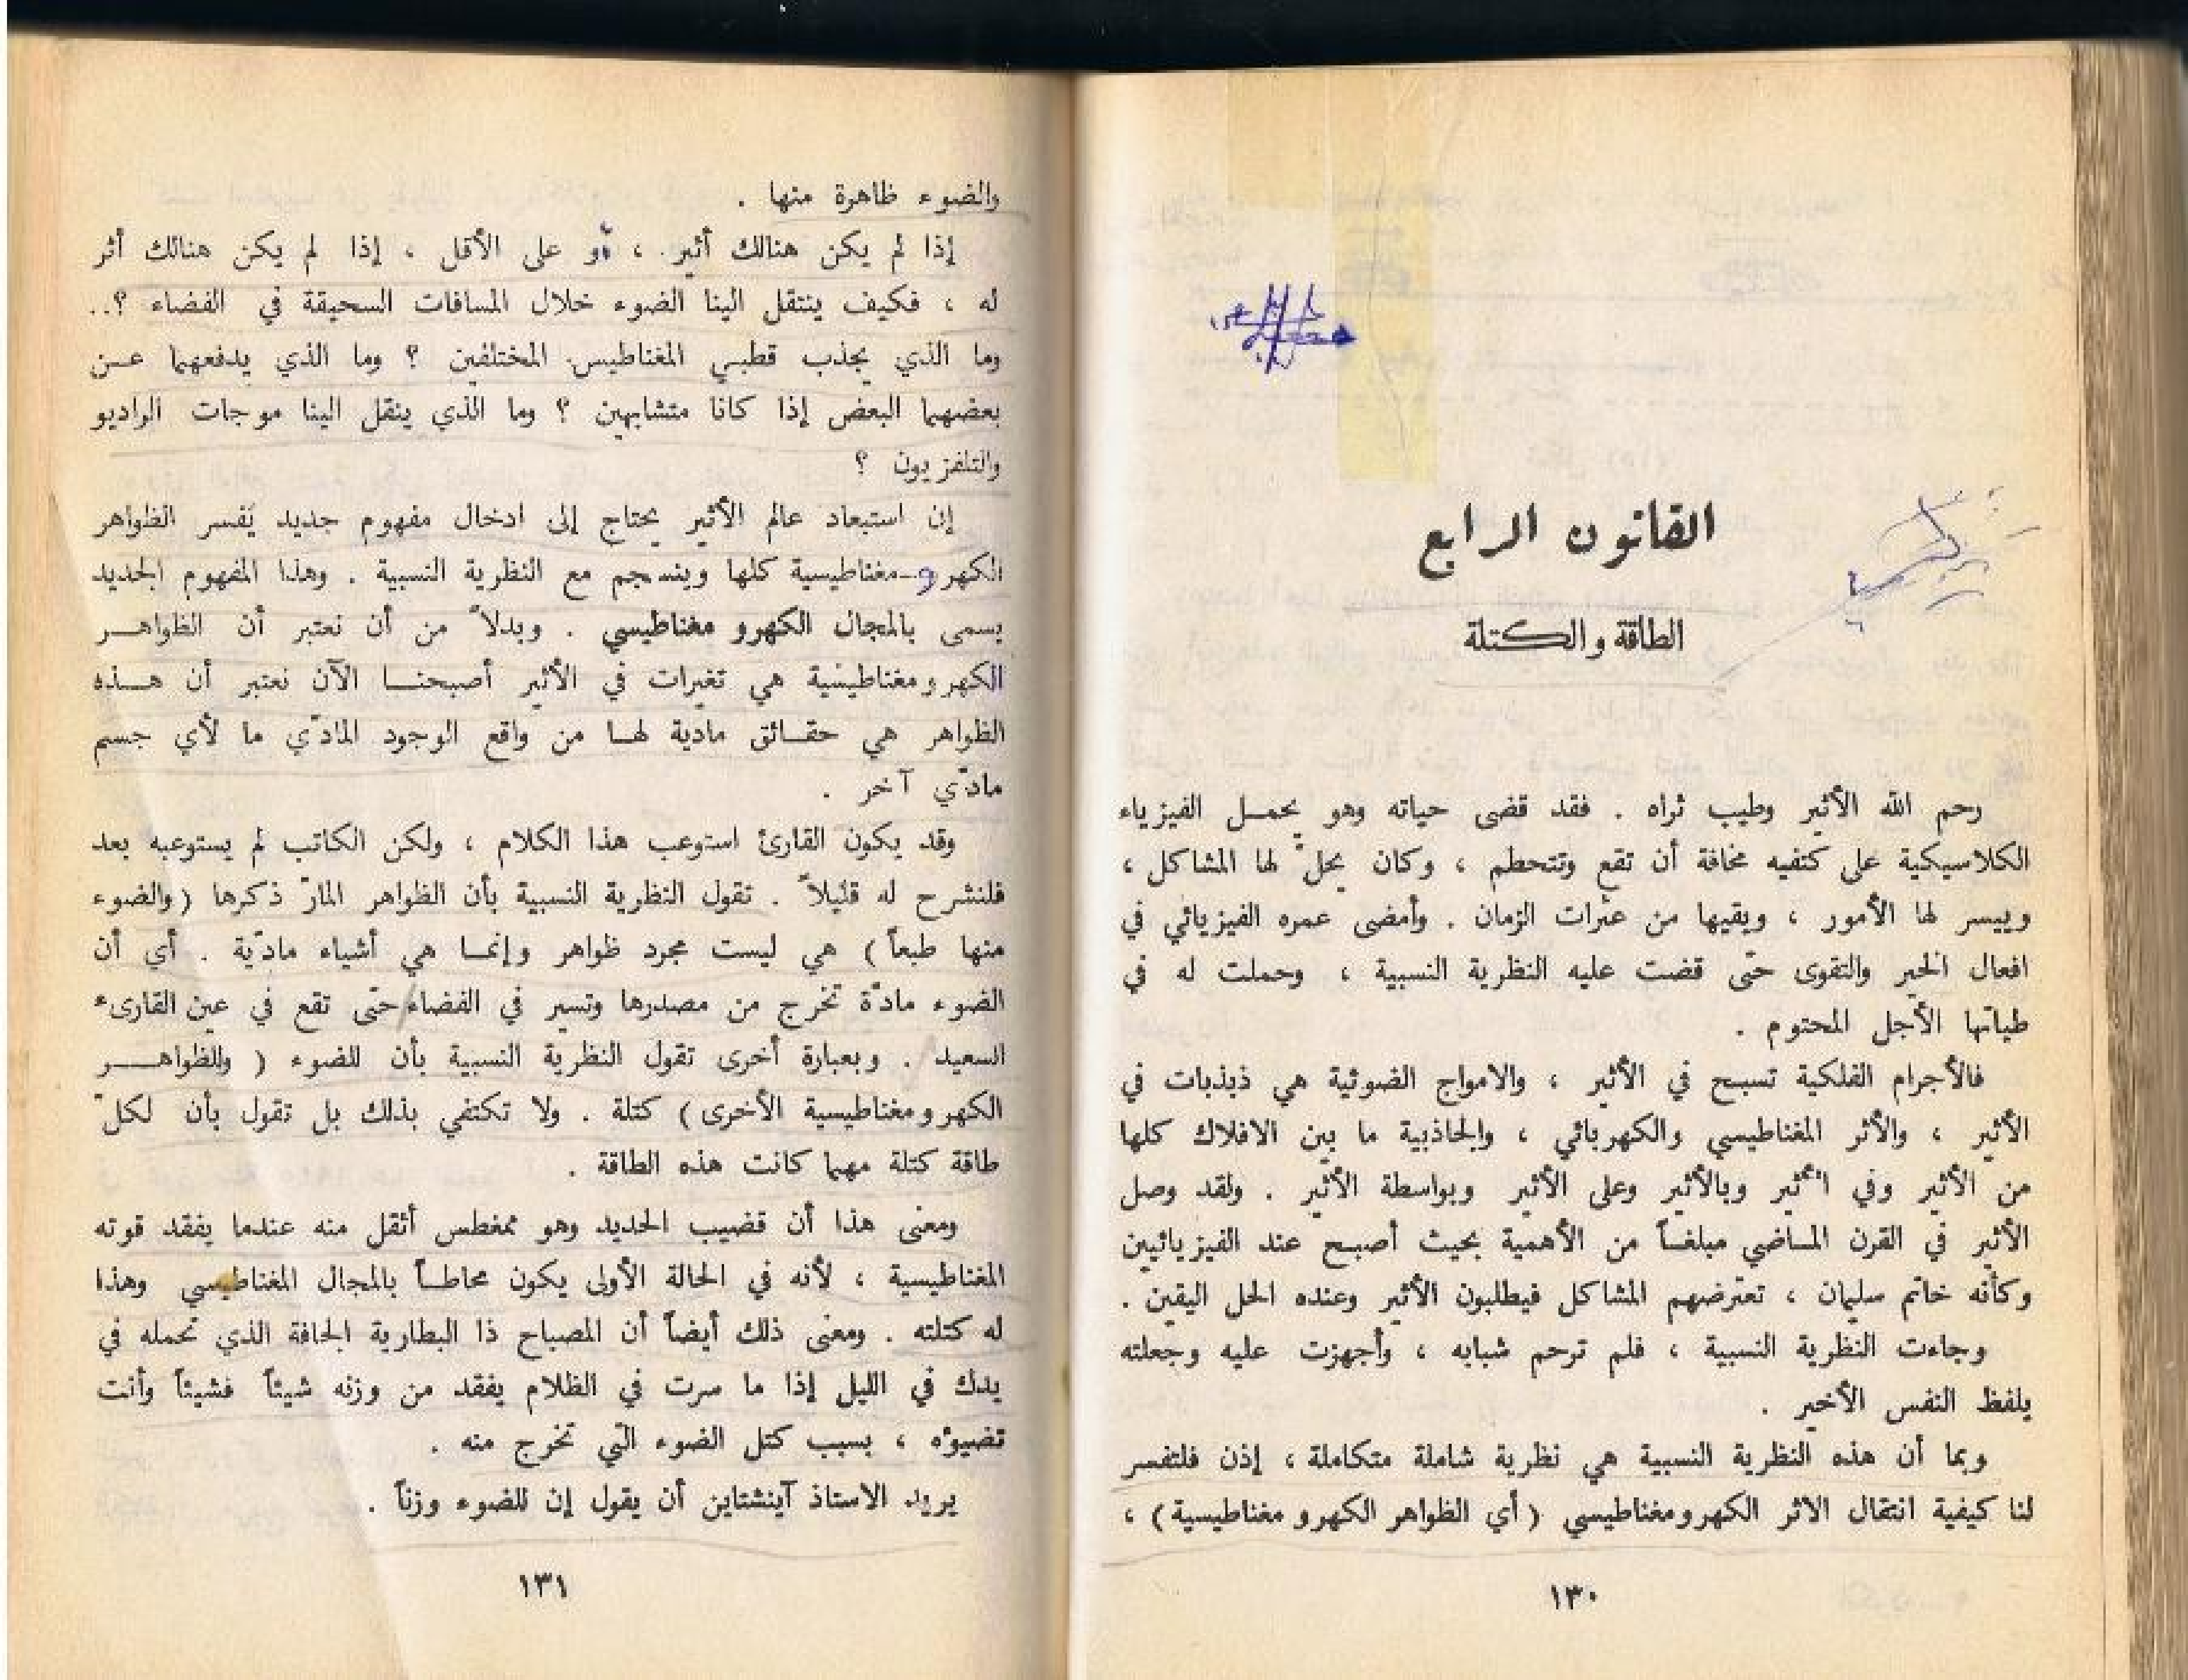 القانون الرابع
الطاقة والكتلة
رحم الله الأثير وطيب ثراه . فقد قضى حياته وهو يحمــل الفيزياء
الكلاسيكية على كتفيه مخافة أن تقع وتتحطم ، وكان يحلّ لها المشاكل ،
وييسر لها الأمور ، ويقيها من عثرات الزمان . وأمضى عمره الفيزيائي في
افعال الخير والتقوى حتّى قضت عليه النظرية النسبية ، وحملت له في
طياتها الأجل المحتوم .
فالأجرام الفلكية تسبح في الأثير ، والامواج الضوئية هي ذبذبات في
الأثير ، والأثر المغناطيسي والكهربائي ، والجاذبية ما بين الافلاك كلها
من الأثير وفي الأثير وبالأثير وعلى الأثير وبواسطة الأثير . ولقد وصل
الأثير في القرن المـاضي مبلغـاً من الأهمية بحيث أصبح عند الفيزيائيين
وكأنه خاتم سليمان ، تعترضهم المشاكل فيطلبون الأثير وعنده الحل اليقين .
وجاءت النظرية النسبية ، فلم ترحم شبابه ، وأجهزت عليه وجعلته
يلفظ النفس الأخير .
وبما أن هذه النظرية النسبية هي نظرية شاملة متكاملة ، إذن فلتفسر
لنا كيفية انتقال الاثر الكهرومغناطيسي ( أي الظواهر الكهرو مغناطيسية ) ،
١٣٠
والضوء ظاهرة منها .
إذا لم يكن هنالك أثير ، أو على الأقل ، إذا لم يكن هنالك أثر
له ، فكيف ينتقل الينا الضوء خلال المسافات السحيقة في الفضاء ؟..
وما الذي يجذب قطبي المغناطيس المختلفين ؟ وما الذي يدفعهما عـن
بعضهما البعض إذا كانا متشابهين ؟ وما الذي ينقل الينا موجات الراديو
والتلفزيون ؟
إن استبعاد عالم الأثير يحتاج إلى ادخال مفهوم جديد يُفسر الظواهر
الكهرو-مغناطيسية كلها وينسجم مع النظرية النسبية . وهذا المفهوم الجديد
يسمى بالمجال الكهرو مغناطيسي . وبدلاً من أن نعتبر أن الظواهــر
الكهرومغناطيسية هي تغيرات في الأثير أصبحنــا الآن نعتبر أن هــذه
الظواهر هي حقــائق مادية لهـا من واقع الوجود المادّي ما لأي جسم
مادّي آخر .
وقد يكون القارئ استوعب هذا الكلام ، ولكن الكاتب لم يستوعبه بعد
فلنشرح له قليلاً . تقول النظرية النسبية بأن الظواهر المارّ ذكرها ( والضوء
منها طبعاً ) هي ليست مجرد ظواهر وإنمـا هي أشياء مادّية . أي أن
الضوء مادّة تخرج من مصدرها وتسير في الفضاء حتّى تقع في عين القارىء
السعيد . وبعبارة أخرى تقول النظرية النسبية بأن للضوء ( وللظواهــر
الكهرومغناطيسية الأخرى ) كتلة . ولا تكتفي بذلك بل تقول بأن لكلّ
طاقة كتلة مهما كانت هذه الطاقة .
ومعنى هذا أن قضيب الحديد وهو ممغطس أثقل منه عندما يفقد قوته
المغناطيسية ، لأنه في الحالة الأولى يكون محاطـاً بالمجال المغناطيسي وهذا
له كتلته . ومعنى ذلك أيضاً أن المصباح ذا البطارية الجافة الذي تحمله في
يدك في الليل إذا ما سرت في الظلام يفقد من وزنه شيئاً فشيئاً وأنت
تضيؤه ، بسبب كتل الضوء التي تخرج منه .
يريد الاستاذ آينشتاين أن يقول إن للضوء وزناً .
١٣١